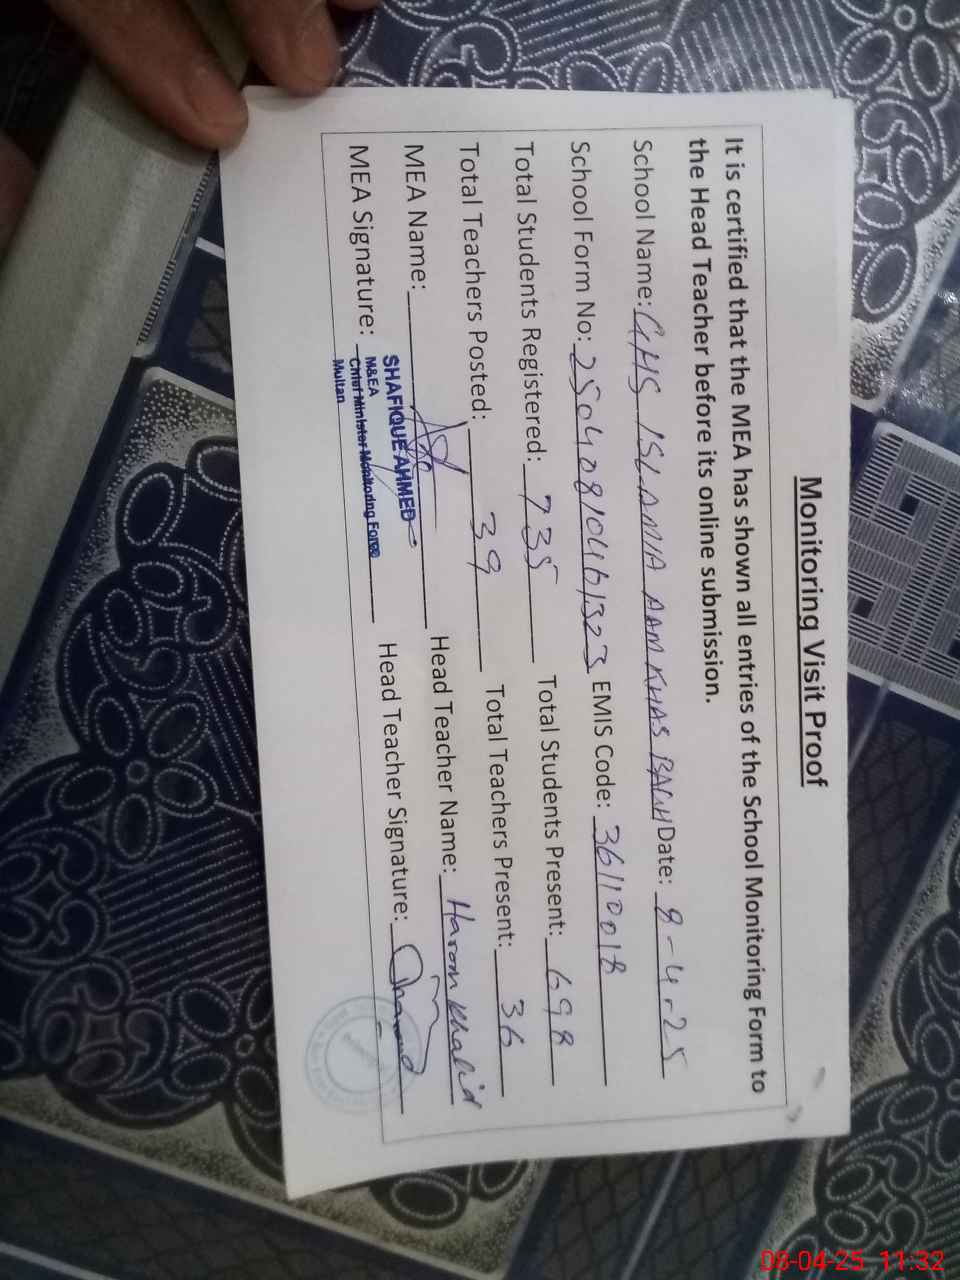 Monitoring Visit Proof
It is certified that the MEA has shown all entries of the School Monitoring Form to
the Head Teacher before its online submission.
School Name: GHS ISLAMIA AAM KHAS BAGH Date: 8-4-25
School Form No: 25040810461323 EMIS Code: 36110018
Total Students Registered: 735 Total Students Present: 698
Total Teachers Posted: 39 Total Teachers Present: 36
MEA Name: Head Teacher Name: Haroon Khalid
MEA Signature: Head Teacher Signature:
SHAFIQUE AHMED
M&EA
Chief Minister Monitoring Force
Multan
08-04-25 11:32